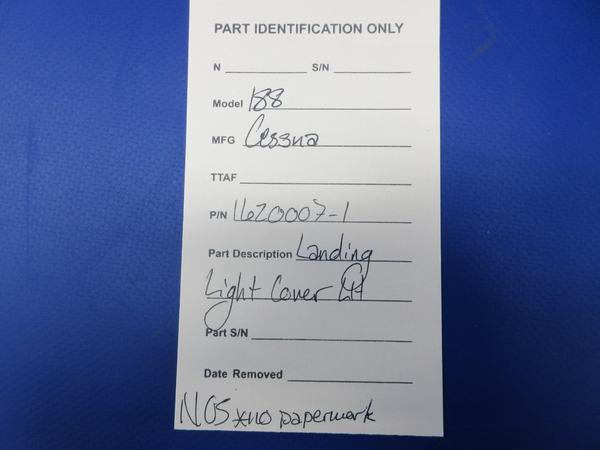 PART IDENTIFICATION ONLY
N S/N
Model 188
MFG Cessna
TTAF
P/N 1620007-1
Part Description Landing
Light Cover Lft
Part S/N
Date Removed
NOS *no paperwork